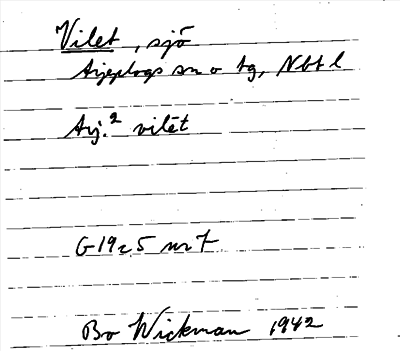 Vilet, sjö
Arjeplogs sn o tg, Nbt l
Arj.² vilēt
G 19c 5 nr 7
Bo Wickman 1942